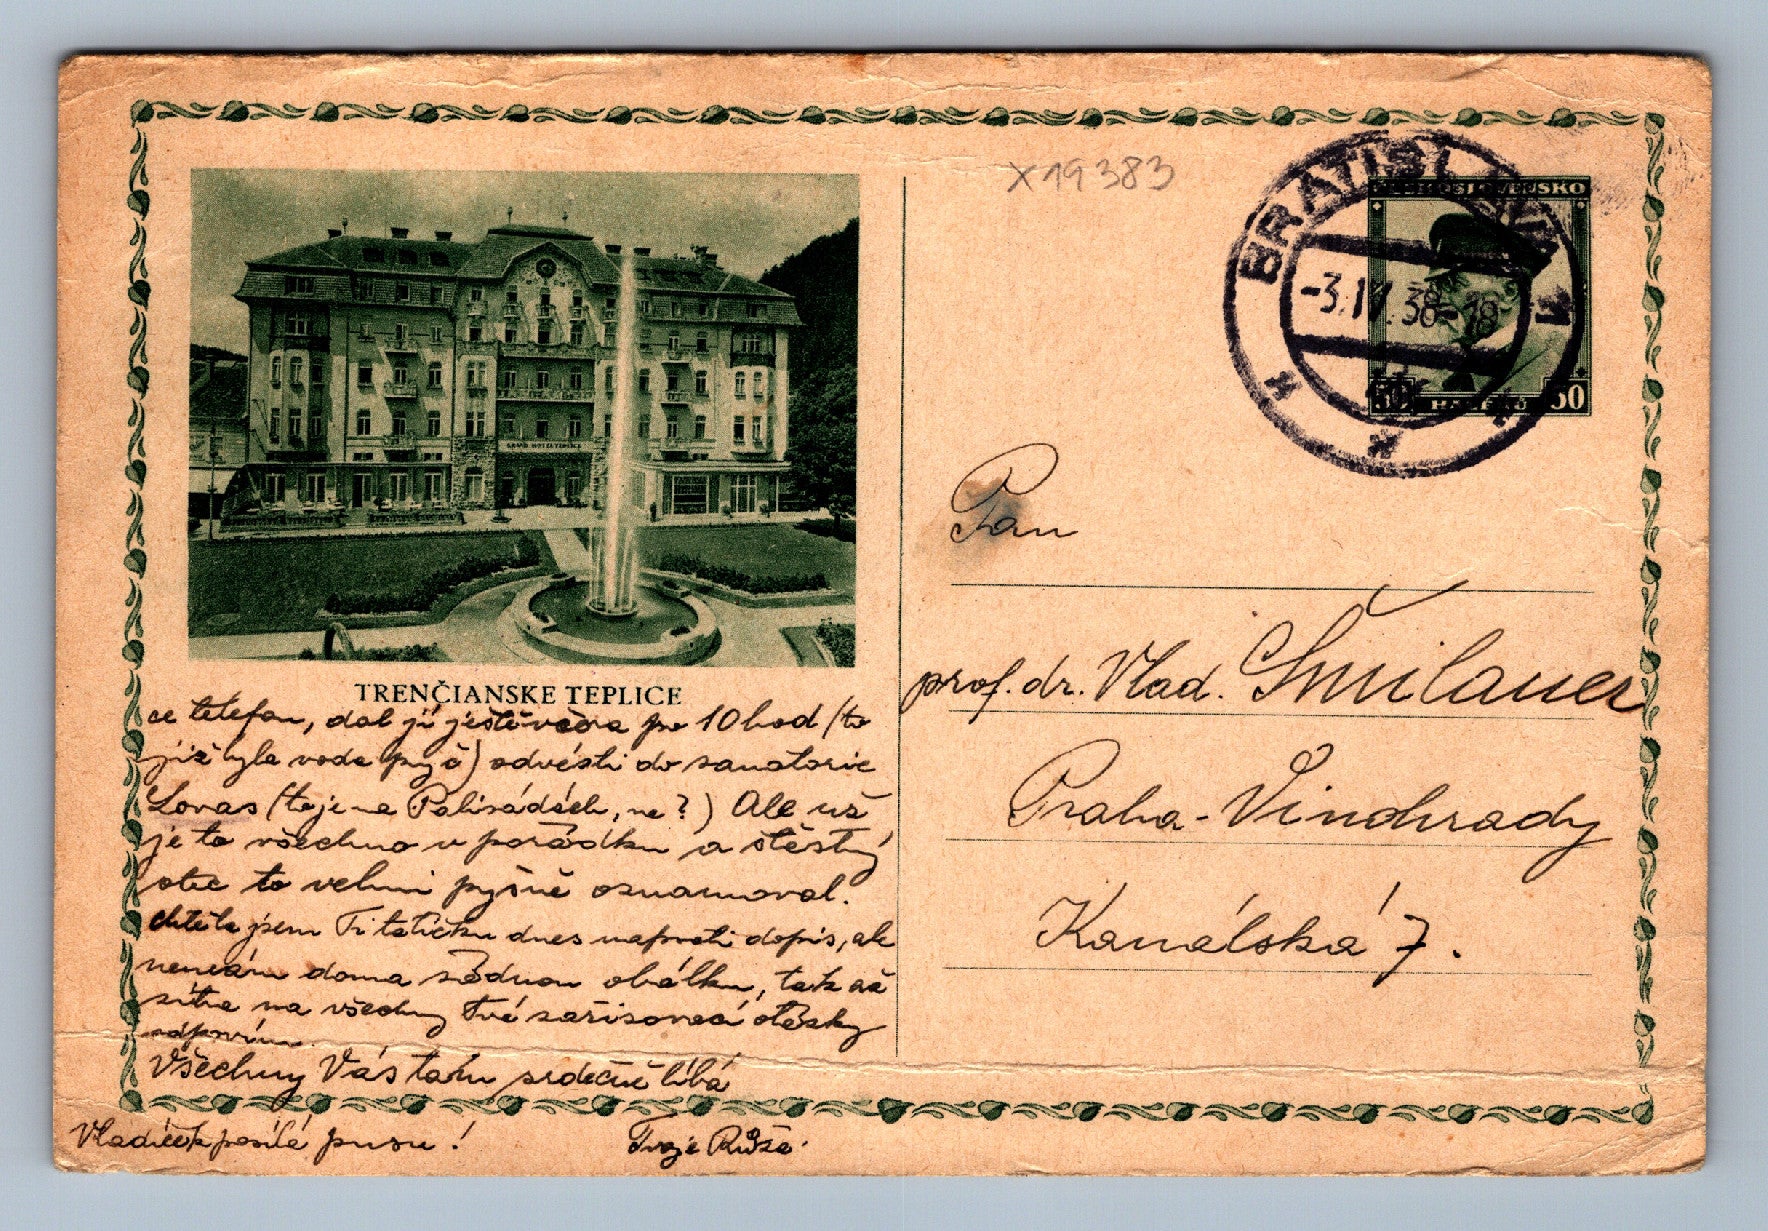 X19383
BRATISLAVA
ČESKOSLOVENSKO
-3.IV.38-18
50 HALÉŘŮ 50
GRAND HOTEL TEPLICE
TRENČIANSKE TEPLICE
ce telefon, dal ji ještě včera po 10 hod (to
již byla voda pryč) odvésti do sanatoria
Lovas (to je na Palisádách, ne?) Ale už
je to všechno v pořádku a šťastný
otec to velmi pyšně oznamoval.
Chtěla jsem Ti tatíčku dnes napsati dopis, ale
nemám doma žádnou obálku, tak až
zítra na všechny Tvé otázky
odpovím.
Všechny Vás tam srdečně líbá
Vladíček posílá pusu!
Tvoje Růža.
Pan
prof. dr. Vlad. Šmilauer
Praha-Vinohrady
Kanálská 7.